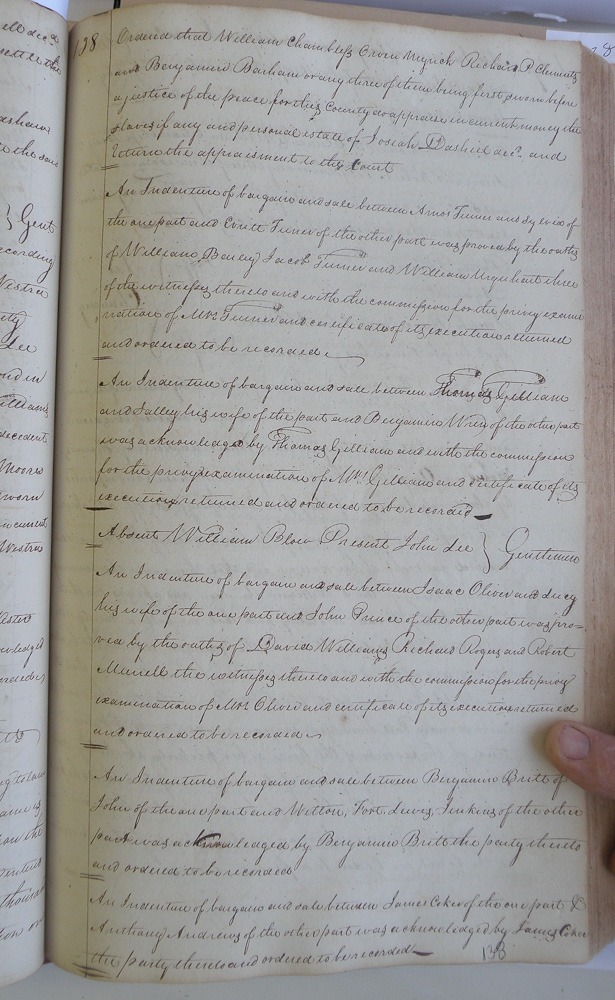 138
Ordered that William Chambless Owen Myrick Richard P Clements
and Benjamin Barham or any three of them being first sworn before
a justice of the peace for this County do appraise in current money the
slaves if any and personal estate of Josiah Dashiell decd. and
return the appraisment to the Court
An Indenture of bargain and sale between Amos Turner and wife of
the one part and Turner of the other part was proved by the oaths
of William Bailey Jacob Turner and William Urquhart three
of the witnesses thereto and with the commission for the privy exami
nation of Mrs Turner and certificate of its execution returned
and ordered to be recorded
An Indenture of bargain and sale between Thomas Gilliam
and Salley his wife of the part and Benjamin of the other part
was acknowledged by Thomas Gilliam and with the commission
for the privy examination of Mrs Gilliam and certificate of its
execution returned and ordered to be recorded
Absent William Blow Present John Lee } Gentlemen
An Indenture of bargain and sale between Isaac Oliver and Lucy
his wife of the one part and John Prince of the other part was pro=
ved by the oaths of David Williams Richard and Robert
Murrell the witnesses thereto and with the commission for the privy
examination of Mrs Oliver and certificate of its execution returned
and ordered to be recorded
An Indenture of bargain and sale between Benjamin Britt of
John of the one part and Jenkins of the other
part was acknowledged by Benjamin Britt the party thereto
and ordered to be recorded
An Indenture of bargain and sale between James Coker of the one part &
Anthony Andrews of the other part was acknowledged by James Coker
the party thereto and ordered to be recorded
138